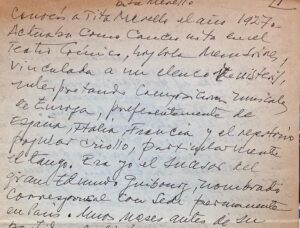 Tita Merello
Conocí a Tita Merello el año 1927.
Actuaba como cancionista en el
Teatro Cómico, hoy Lola Membrives,
vinculada a un elenco
interpretando composiciones musicales
de Europa, preferentemente de
España, Italia, Francia y el repertorio
popular criollo, particularmente
el tango. Era yo el sucesor del
gran Edmundo Guibourg, nombrado
corresponsal con sede permanente
en París unos meses antes de su